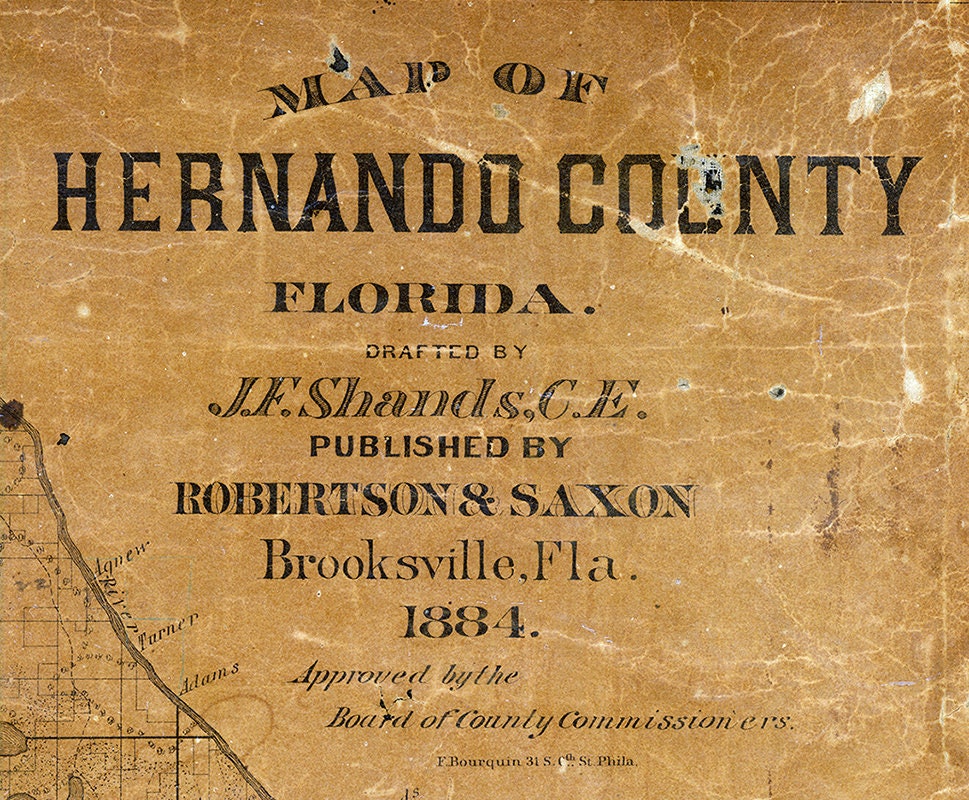 MAP OF
HERNANDO COUNTY
FLORIDA.
DRAFTED BY
J.F. Shands, C.E.
PUBLISHED BY
ROBERTSON & SAXON
Brooksville, Fla.
1884.
Approved by the
Board of County Commissioners.
F. Bourquin 31 S. 6th St. Phila.
Agnew
River
Turner
Adams